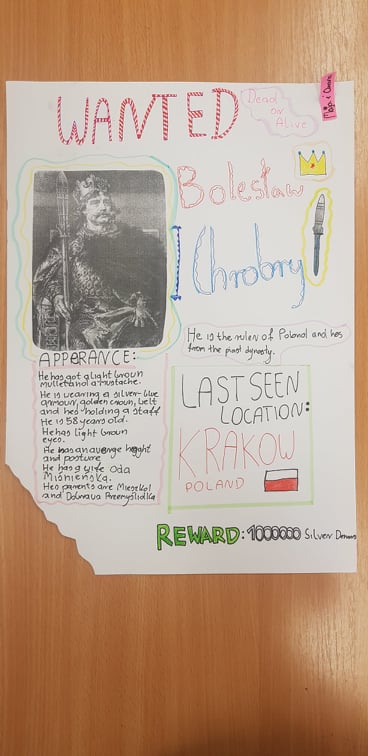 WANTED
Dead
or
Alive
Bolesław
Chrobry
He is the ruler of Poland and hes
from the piast dynasty.
APPERANCE:
He has got a light broun
mullet and a mustache.
He is wearing a silver-blue
armour, golden croun, belt
and hes holding a staff
He is 58 years old.
He has light broun
eyes.
He has an average hight
and posture
He has a wife Oda
Miśnieńska.
Hes parents are Mieszko I
and Dobrava Przemyślidka
LAST SEEN
LOCATION:
KRAKOW
POLAND
REWARD: 1000000 Silver